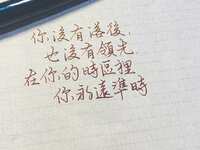 你沒有落後,
也沒有領先
在你的時區裡
你永遠準時